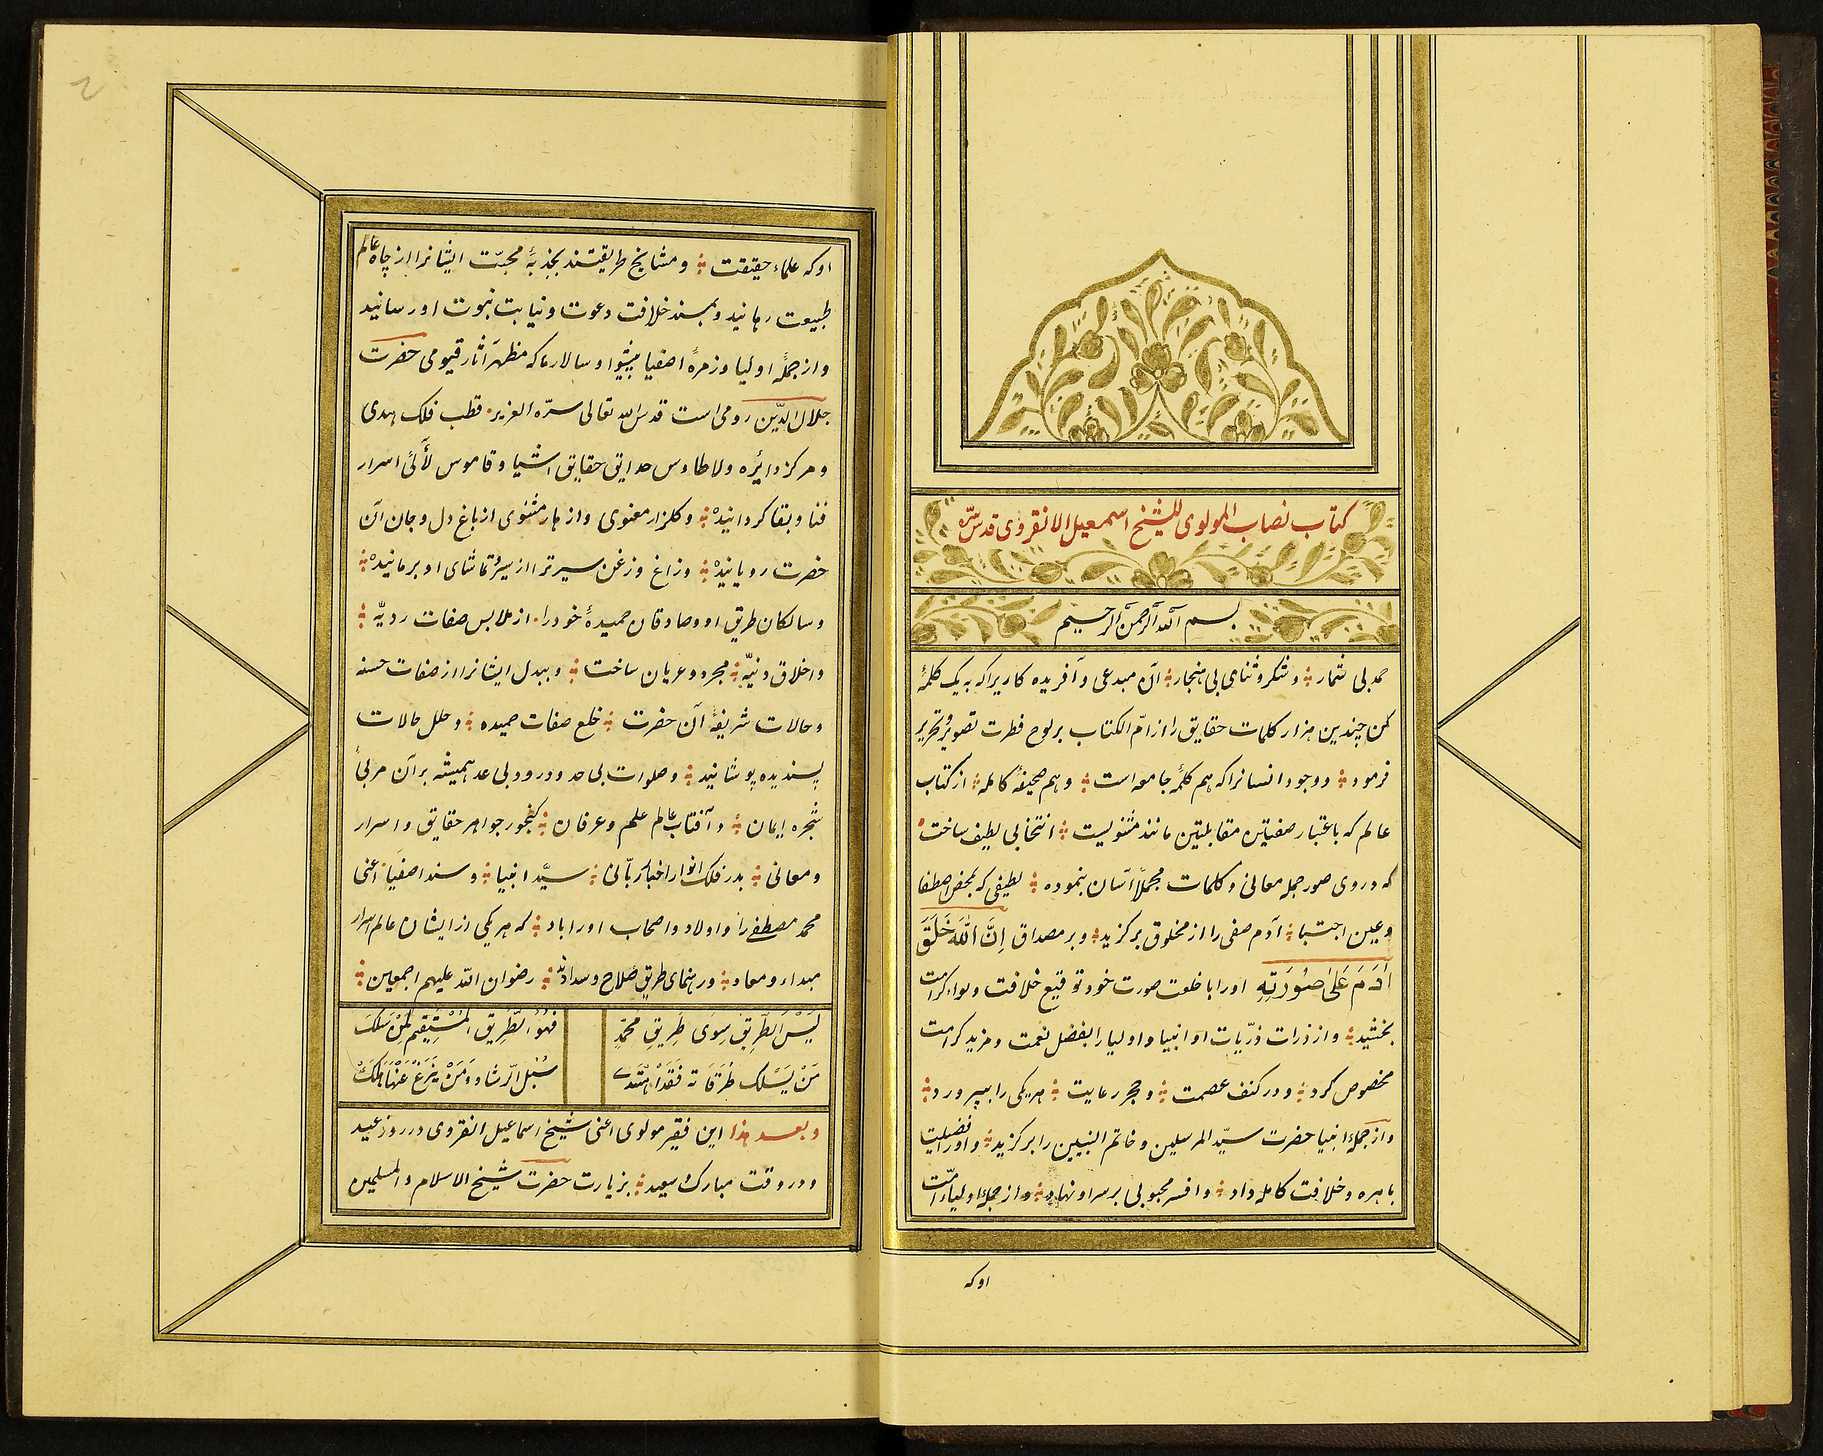 كتاب نصاب المولوى للشيخ اسمعيل الانقروى قدس سره
بسم الله الرحمن الرحيم
حمد بى شمار و شكر و ثناى بى هنجار آن مبدعى و آفريده كاريرا كه به يك كلمهٔ
كن چندين هزار كلمات حقايق را از امّ الكتاب بر لوح فطرت تصوير و تحرير
فرمود و وجود انسانرا كه هم كلمهٔ جامعه است و هم صحيفهٔ كامله از كتاب
عالم كه باعتبار صفيانين متقابلتين مانند مثنويست انتخابى لطيف ساخت
كه در وى صور جمله معانى و كلمات مجملاً آسان بنموده لطيفى كه بمحض اصطفا
و عين اجتبا آدم صفى را از مخلوق بركزيد و بر مصداق اِنَّ اللهَ خَلَقَ
آدَمَ عَلٰى صُورَتِهِ اورا با خلعت صورت خود توقيع خلافت و لواء كرامت
بخشيد و از ذرات ذرّيات او انبيا و اوليا را بفضل نعمت و مزيد كرامت
مخصوص كرد و در كنف عصمت و حجر رعايت هر يكى را بپرورد
و از جملهٔ انبيا حضرت سيّد المرسلين و خاتم النبيين را بركزيد و اورا فضيلت
باهره و خلافت كامله داد و افسر محبوبى بر سر او نهاد و از جملهٔ اولياء امّت
اوكه
اوكه علماء حقيقت و مشايخ طريقتند بجذبهٔ محبّت ايشانرا از چاه عالم
طبيعت رهانيد و بمسند خلافت دعوت و نيابت نبوت او رسانيد
و از جملهٔ اوليا و زمرهٔ اصفيا پيشوا و سالار ما كه مظهر آثار قيومى حضرت
جلال الدّين رومى است قدس الله تعالى سرّه العزيز قطب فلك هدى
و مركز دايرهٔ ولا طاوس حدايق حقايق اشيا و قاموس لآلئ اسرار
فنا و بقا كردانيد و كلزار معنوى و ازهار مثنوى از باغ دل و جان آن
حضرت رويانيد و زاغ و زغن سيرترا از سير و تماشاى او برمانيد
و سالكان طريق او و صادقان حميدهٔ خودرا از ملابس صفات رديّه
و اخلاق دنيّه مجرد و عريان ساخت و ببدل ايشانرا از صفات حسنه
و حالات شريفهٔ آن حضرت خلع صفات حميده و حلل حالات
پسنديده پوشانيد و صلوات بى حد و درود بى عد هميشه بر آن مربىٔ
شجره ايمان و آفتاب عالم علم و عرفان كنجور جواهر حقايق و اسرار
و معانى بدر فلك انوار اخبار ربّانى سيّد انبيا و سند اصفيا اعنى
محمد مصطفى را و اولاد و اصحاب اورا باد كه هر يكى از ايشان عالم اسرار
مبداء و معاد و رهنماى طريق صلاح و سدادند رضوان الله عليهم اجمعين
لَيْسَ الطَّرِيقُ سِوَى طَرِيقِ مُحَمَّدٍ فَهُوَ الطَّرِيقُ الْمُسْتَقِيمُ لِمَنْ سَلَكَ
مَنْ يَسْلُكْ طُرُقَاتِهِ فَقَدِ اهْتَدَى سُبُلَ الرَّشَادِ وَمَنْ يَزِغْ عَنْهَا هَلَكَ
و بعد هذا اين فقير مولوى اعنى شيخ اسماعيل انقروى در روز عيد
و در وقت مبارك سعيد بزيارت حضرت شيخ الاسلام و المسلمين